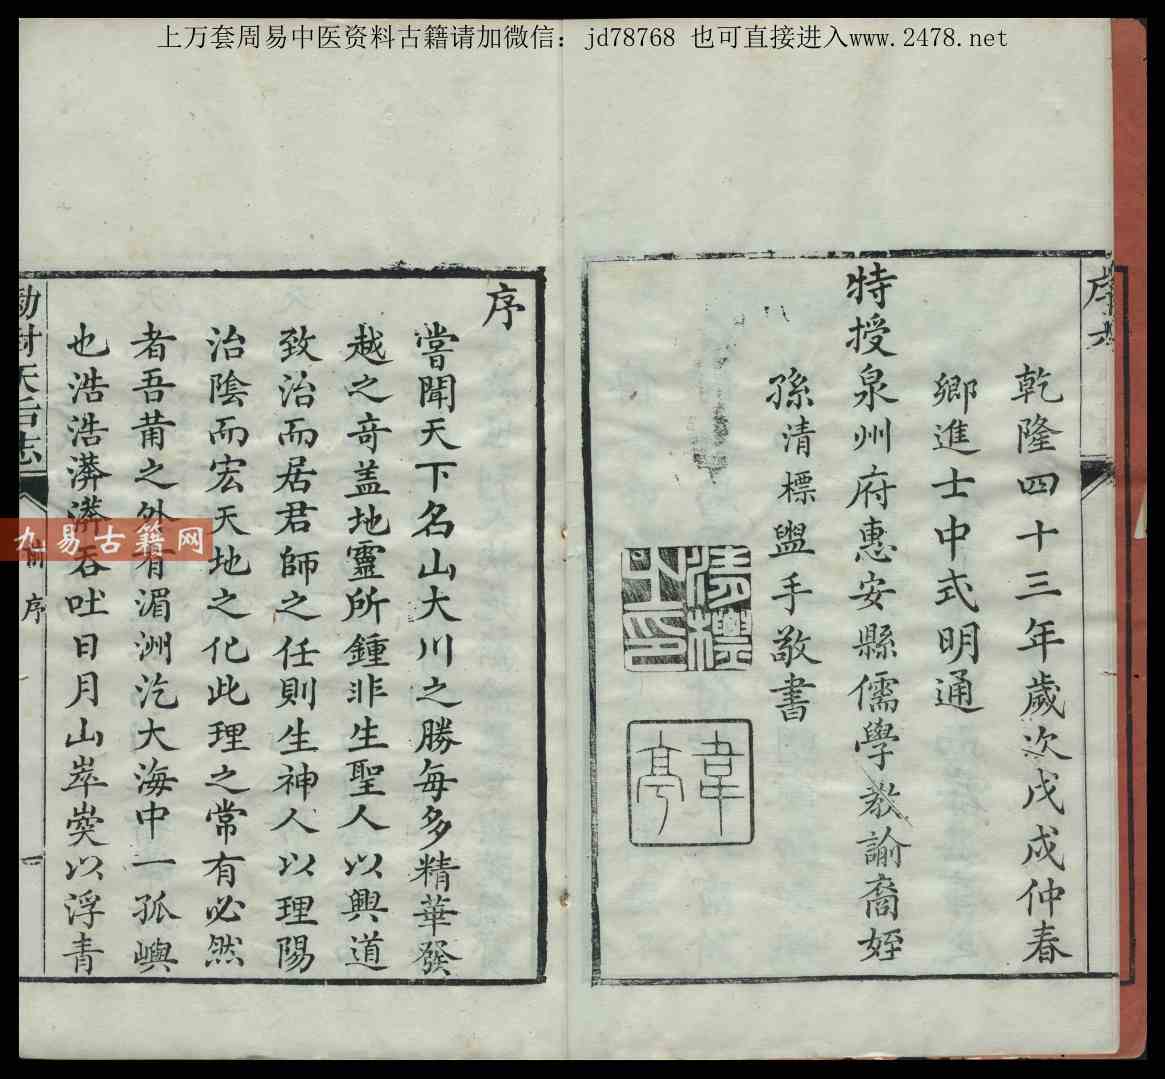 上万套周易中医资料古籍请加微信：jd78768 也可直接进入www.2478.net
序
乾隆四十三年歲次戊戌仲春
鄉進士中式明通
特授泉州府惠安縣儒學教諭裔姪
孫清標盥手敬書
清標
士印
韋
亭
序
嘗聞天下名山大川之勝每多精華發
越之竒盖地靈所鍾非生聖人以興道
致治而居君師之任則生神人以理陽
治隂而宏天地之化此理之常有必然
者吾莆之外有湄洲汔大海中一孤嶼
也浩浩漭漭吞吐日月山崒𡸨以浮青
勅封天后志
前序
一
九易古籍网